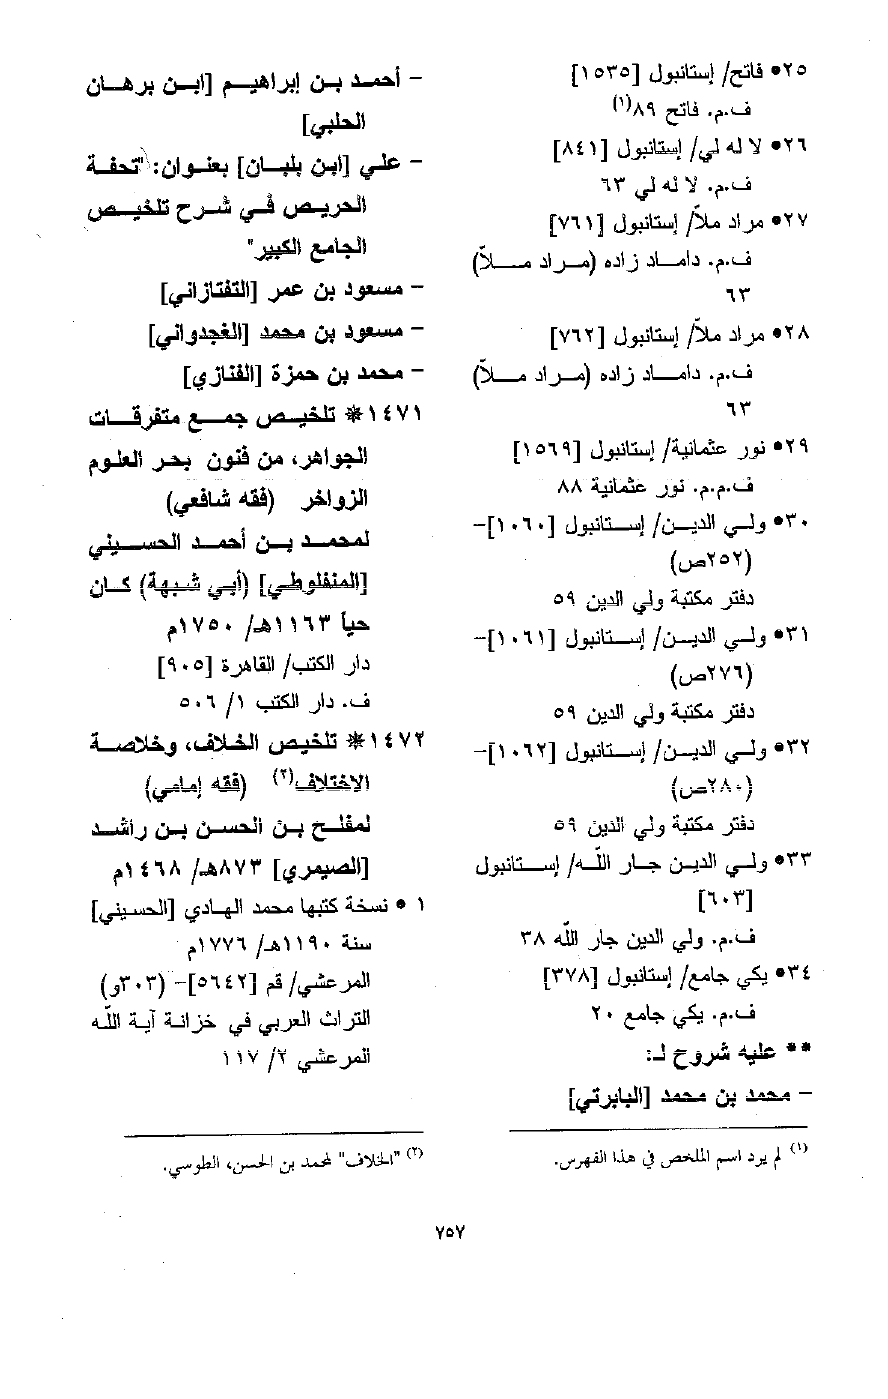 ٢٥• فاتح/ إستانبول [١٥٣٥]
ف.م. فاتح ٨٩(١)
٢٦• لا له لي/ إستانبول [٨٤١]
ف.م. لا له لي ٦٣
٢٧• مراد ملاّ/ إستانبول [٧٦١]
ف.م. داماد زاده (مراد ملاّ)
٦٣
٢٨• مراد ملاّ/ إستانبول [٧٦٢]
ف.م. داماد زاده (مراد ملاّ)
٦٣
٢٩• نور عثمانية/ إستانبول [١٥٦٩]
ف.م.م. نور عثمانية ٨٨
٣٠• ولي الدين/ إستانبول [١٠٦٠]-
(٢٥٢ص)
دفتر مكتبة ولي الدين ٥٩
٣١• ولي الدين/ إستانبول [١٠٦١]-
(٢٧٦ص)
دفتر مكتبة ولي الدين ٥٩
٣٢• ولي الدين/ إستانبول [١٠٦٢]-
(٢٨٠ص)
دفتر مكتبة ولي الدين ٥٩
٣٣• ولي الدين جار الله/ إستانبول
[٦٠٣]
ف.م. ولي الدين جار الله ٣٨
٣٤• يكي جامع/ إستانبول [٣٧٨]
ف.م. يكي جامع ٢٠
** عليه شروح لـ:
– محمد بن محمد [البابرتي]
(١) لم يرد اسم الملخص في هذا الفهرس.
– أحمد بن إبراهيم [ابن برهان
الحلبي]
– علي [ابن بلبان] بعنوان: "تحفة
الحريص في شرح تلخيص
الجامع الكبير"
– مسعود بن عمر [التفتازاني]
– مسعود بن محمد [الغجدواني]
– محمد بن حمزة [الفنازي]
١٤٧١* تلخيص جمع متفرقات
الجواهر، من فنون بحر العلوم
الزواخر (فقه شافعي)
لمحمد بن أحمد الحسيني
[المنفلوطي] (أبي شبهة) كان
حياً ١١٦٣هـ/ ١٧٥٠م
دار الكتب/ القاهرة [٩٠٥]
ف. دار الكتب ١/ ٥٠٦
١٤٧٢* تلخيص الخلاف، وخلاصة
الاختلاف(٢) (فقه إمامي)
لمفلح بن الحسن بن راشد
[الصيمري] ٨٧٣هـ/ ١٤٦٨م
١ • نسخة كتبها محمد الهادي [الحسيني]
سنة ١١٩٠هـ/ ١٧٧٦م
المرعشي/ قم [٥٦٤٢]- (٣٠٣و)
التراث العربي في خزانة آية الله
المرعشي ٢/ ١١٧
(٢) "الخلاف" لمحمد بن الحسن، الطوسي.
٧٥٧